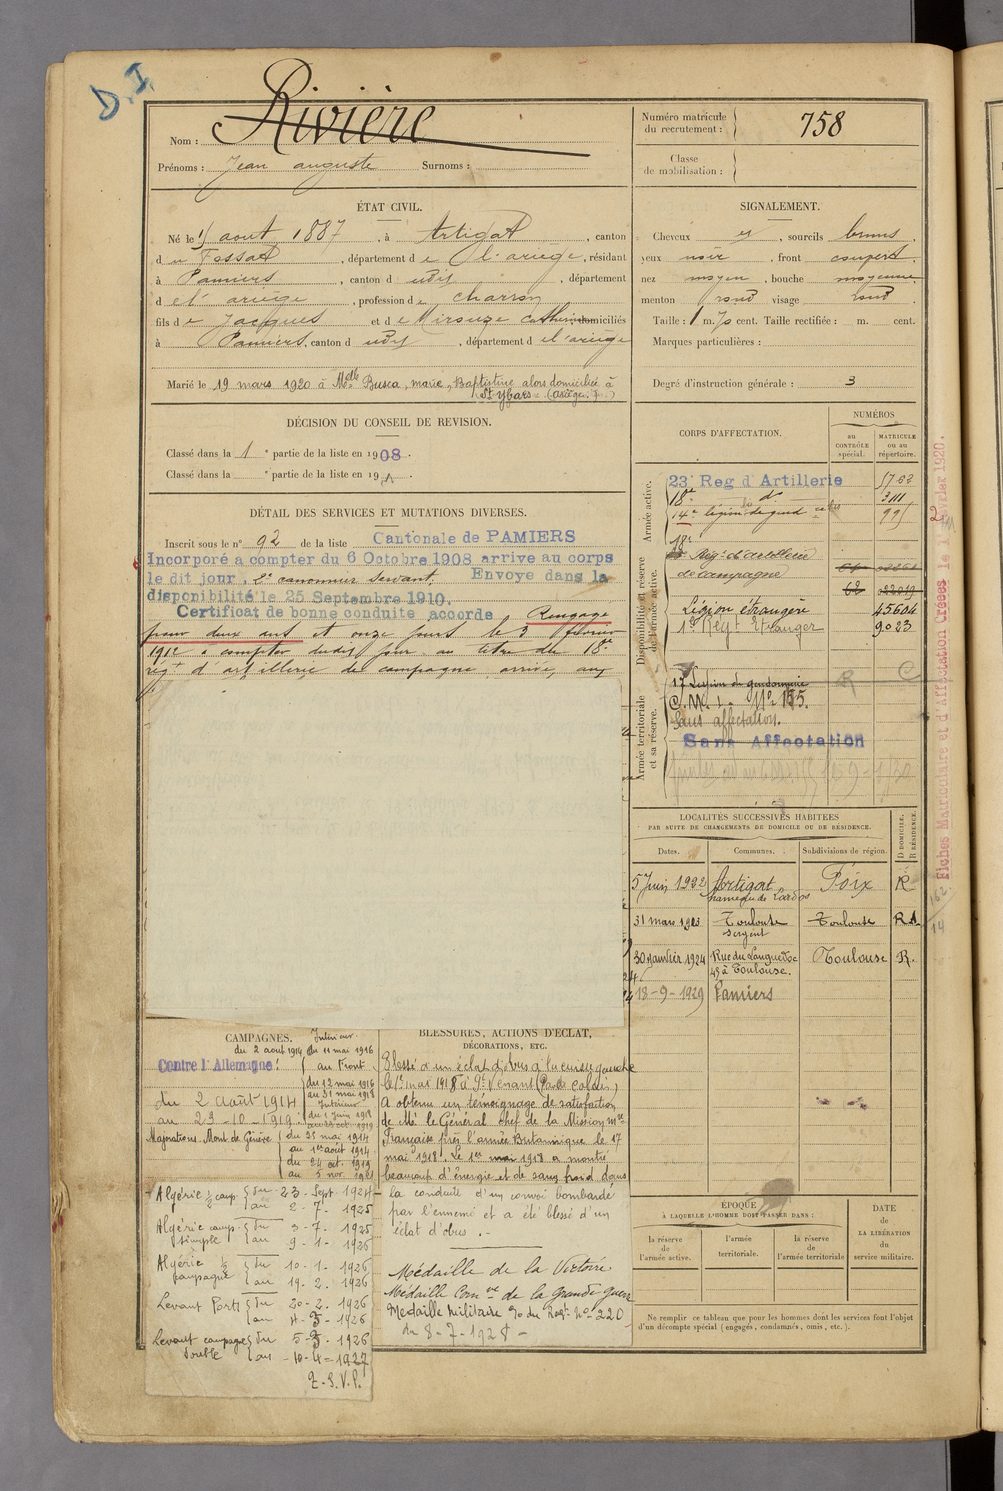 D.I.
Nom : Rivière
Prénoms : Jean auguste Surnoms :
Numéro matricule
du recrutement : 758
Classe
de mobilisation :
ÉTAT CIVIL.
Né le 15 aout 1887, à Artigat, canton
du Fossat, département de l'ariège, résidant
à Pamiers, canton d udis, département
d el'ariège, profession de charron
fils de Jacques et de Mirouze Catherine domiciliés
à Pamiers, canton d udis, département d el'ariège
Marié le 19 mars 1920 à Melle Busca, marie, Baptistine alors domiciliée à
St Ybars (ariège)
SIGNALEMENT.
Cheveux et, sourcils bruns,
yeux noir, front couvert,
nez moyen, bouche moyenne
menton rond visage rond.
Taille : 1 m. 70 cent. Taille rectifiée : m. cent.
Marques particulières :
Degré d'instruction générale : 3
DÉCISION DU CONSEIL DE REVISION.
Classé dans la 1e partie de la liste en 1908.
Classé dans la e partie de la liste en 191
DÉTAIL DES SERVICES ET MUTATIONS DIVERSES.
Inscrit sous le n° 92 de la liste Cantonale de PAMIERS
Incorporé a compter du 6 Octobre 1908 arrive au corps
le dit jour. 2e canonnier servant. Envoye dans la
disponibilité le 25 Septembre 1910.
Certificat de bonne conduite accorde Rengagé
pour deux ans et onze jours le 3 février
1912 à compter dudit jour au titre du 18e
régt d'artillerie de campagne, arrivé, aux
CORPS D'AFFECTATION.
NUMÉROS
au
CONTRÔLE
spécial.
MATRICULE
ou au
répertoire.
Armée active.
23e Reg d'Artillerie 5763
18e do 3111
14e légion de gend 995
Disponibilité et réserve
de l'armée active.
18e
Régt d'artillerie
de campagne
62 22019
Légion étrangère 45604
1er Régt Etranger 9023
Armée territoriale
et sa réserve.
17 Légion de gendarmerie
C.M.I. No 155.
Sans affectation.
Sans Affectation
Fiches Matriculaire et d'Affectation Créées le 1 Février 1920.
LOCALITÉS SUCCESSIVES HABITÉES
PAR SUITE DE CHANGEMENTS DE DOMICILE OU DE RÉSIDENCE.
Dates. Communes. Subdivisions de région. D DOMICILE. R RÉSIDENCE.
5 Juin 1922 Artigat Foix R
hameau de
31 mars 1923 Toulouse Toulouse RA
sergent
30 janvier 1924 Rue du Languedoc Toulouse R.
49 à Toulouse.
18-9-1929 Pamiers
CAMPAGNES.
Contre l'Allemagne :
du 2 août 1914
au 23-10-1919
Intérieur
du 2 aout 1914 au 11 mai 1916
au Front
du 12 mai 1916
au 31 mai 1918
Intérieur
du 1 juin 1918
au 23 oct. 1919
Majorations. Mont de Genève
du 25 mai 1914
au 1er août 1914
du 24 oct. 1919
au 5 nov. 1921
Algérie ½ camp. du 23-Sept 1924
au 2-7-1925
Algérie camp. simple du 3-7-1925
au 9-1-1926
Algérie ½ campagne du 10-1-1926
au 19-2-1926
Levant du 20-2-1926
au 4-3-1926
Levant campagne double du 5-3-1926
au 10-4-1927
T.S.V.P.
BLESSURES, ACTIONS D'ÉCLAT,
DÉCORATIONS, ETC.
Blessé d'un éclat d'obus à la cuisse gauche
le 1er mai 1918 à St Venant (Pas de Calais)
A obtenu un témoignage de satisfaction
de Mr le Général chef de la Mission mre
Française près l'armée Britannique le 17
mai 1918. Le 1er mai 1918 a montré
beaucoup d'énergie et de sang froid dans
la conduite d'un convoi bombardé
par l'ennemi et a été blessé d'un
éclat d'obus.
Médaille de la Victoire
Médaille Comve de la Grande guerre
Médaille Militaire
du 8-7-1928
ÉPOQUE
À LAQUELLE L'HOMME DOIT PASSER DANS :
la réserve
de
l'armée active.
l'armée
territoriale.
la réserve
de
l'armée territoriale
DATE
de
LA LIBÉRATION
du
service militaire.
Ne remplir ce tableau que pour les hommes dont les services font l'objet
d'un décompte spécial (engagés, condamnés, omis, etc.).